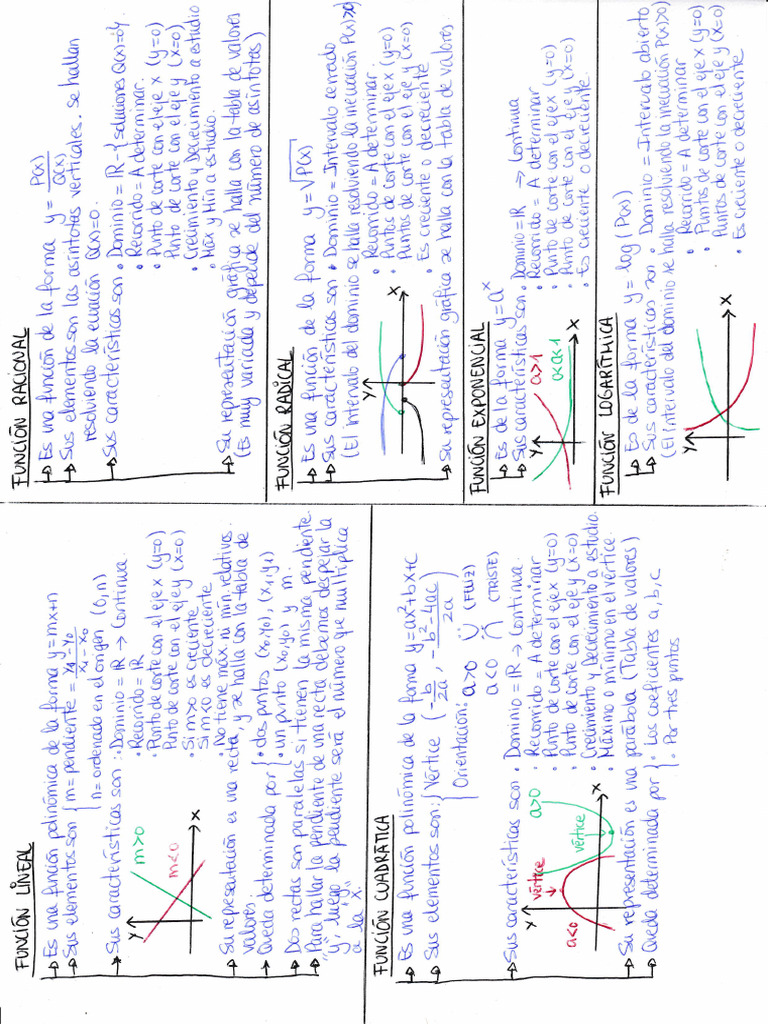 FUNCIÓN LINEAL
Es una función polinómica de la forma y=mx+n
Sus elementos son { m=pendiente = y₁-y₀ / x₁-x₀
n= ordenado en el origen (0,n)
Sus características son: • Dominio = ℝ → Continua.
• Recorrido = ℝ
• Punto de corte con el eje x (y=0)
Punto de corte con el eje y (x=0)
• Si m>0 es creciente
Si m<0 es decreciente
• No tiene máx. ni mín. relativos.
Y
m>0
m<0
X
Su representación es una recta, y se halla con la tabla de
valores.
Queda determinada por { • dos puntos (x₀,y₀), (x₁,y₁)
• un punto (x₀,y₀) y m.
Dos rectas son paralelas si tienen la misma pendiente.
Para hallar la pendiente de una recta debemos despejar la
"y", luego la pendiente será el número que multiplica
a la x.
FUNCIÓN CUADRÁTICA
Es una función polinómica de la forma y=ax²+bx+c
Sus elementos son: { Vértice (-b/2a, -b²-4ac/2a)
Orientación: a>0 ∪ (FELIZ)
a<0 ∩ (TRISTE)
Sus características son • Dominio = ℝ → Continua.
• Recorrido = A determinar
• Punto de corte con el eje x (y=0)
• Punto de corte con el eje y (x=0)
• Crecimiento y Decrecimiento a estudio.
• Máximo o mínimo en el vértice.
Y
vértice
a>0
vértice
a<0
X
Su representación es una parábola (Tabla de valores)
Queda determinada por { • Los coeficientes a, b, c
• Por tres puntos
FUNCIÓN RACIONAL
Es una función de la forma y = P(x)/Q(x)
Sus elementos son las asíntotas verticales. se hallan
resolviendo la ecuación Q(x)=0.
Sus características son • Dominio = ℝ - {soluciones Q(x)=0}
• Recorrido = A determinar.
• Punto de corte con el eje x (y=0)
Punto de corte con el eje y (x=0)
• Crecimiento y Decrecimiento a estudio
• Máx y Mín a estudio.
Su representación gráfica se halla con la tabla de valores
(Es muy variada y depende del número de asíntotas)
FUNCIÓN RADICAL
Es una función de la forma y=√P(x)
Sus características son • Dominio = Intervalo cerrado
(El intervalo del dominio se halla resolviendo la inecuación P(x)≥0)
• Recorrido = A determinar
• Puntos de corte con el eje x (y=0)
Puntos de corte con el eje y (x=0)
• Es creciente o decreciente
Y
X
Su representación gráfica se halla con la tabla de valores.
FUNCIÓN EXPONENCIAL
Es de la forma y=aˣ
Sus características son • Dominio = ℝ → Continua
• Recorrido = A determinar
• Punto de corte con el eje x (y=0)
• Punto de corte con el eje y (x=0)
• Es creciente o decreciente.
Y
a>1
0<a<1
X
FUNCIÓN LOGARÍTMICA
Es de la forma y=log(P(x))
Sus características son • Dominio = Intervalo abierto
(El intervalo del dominio se halla resolviendo la inecuación P(x)>0)
• Recorrido = A determinar
• Puntos de corte con el eje x (y=0)
• Puntos de corte con el eje y (x=0)
• Es creciente o decreciente
Y
X